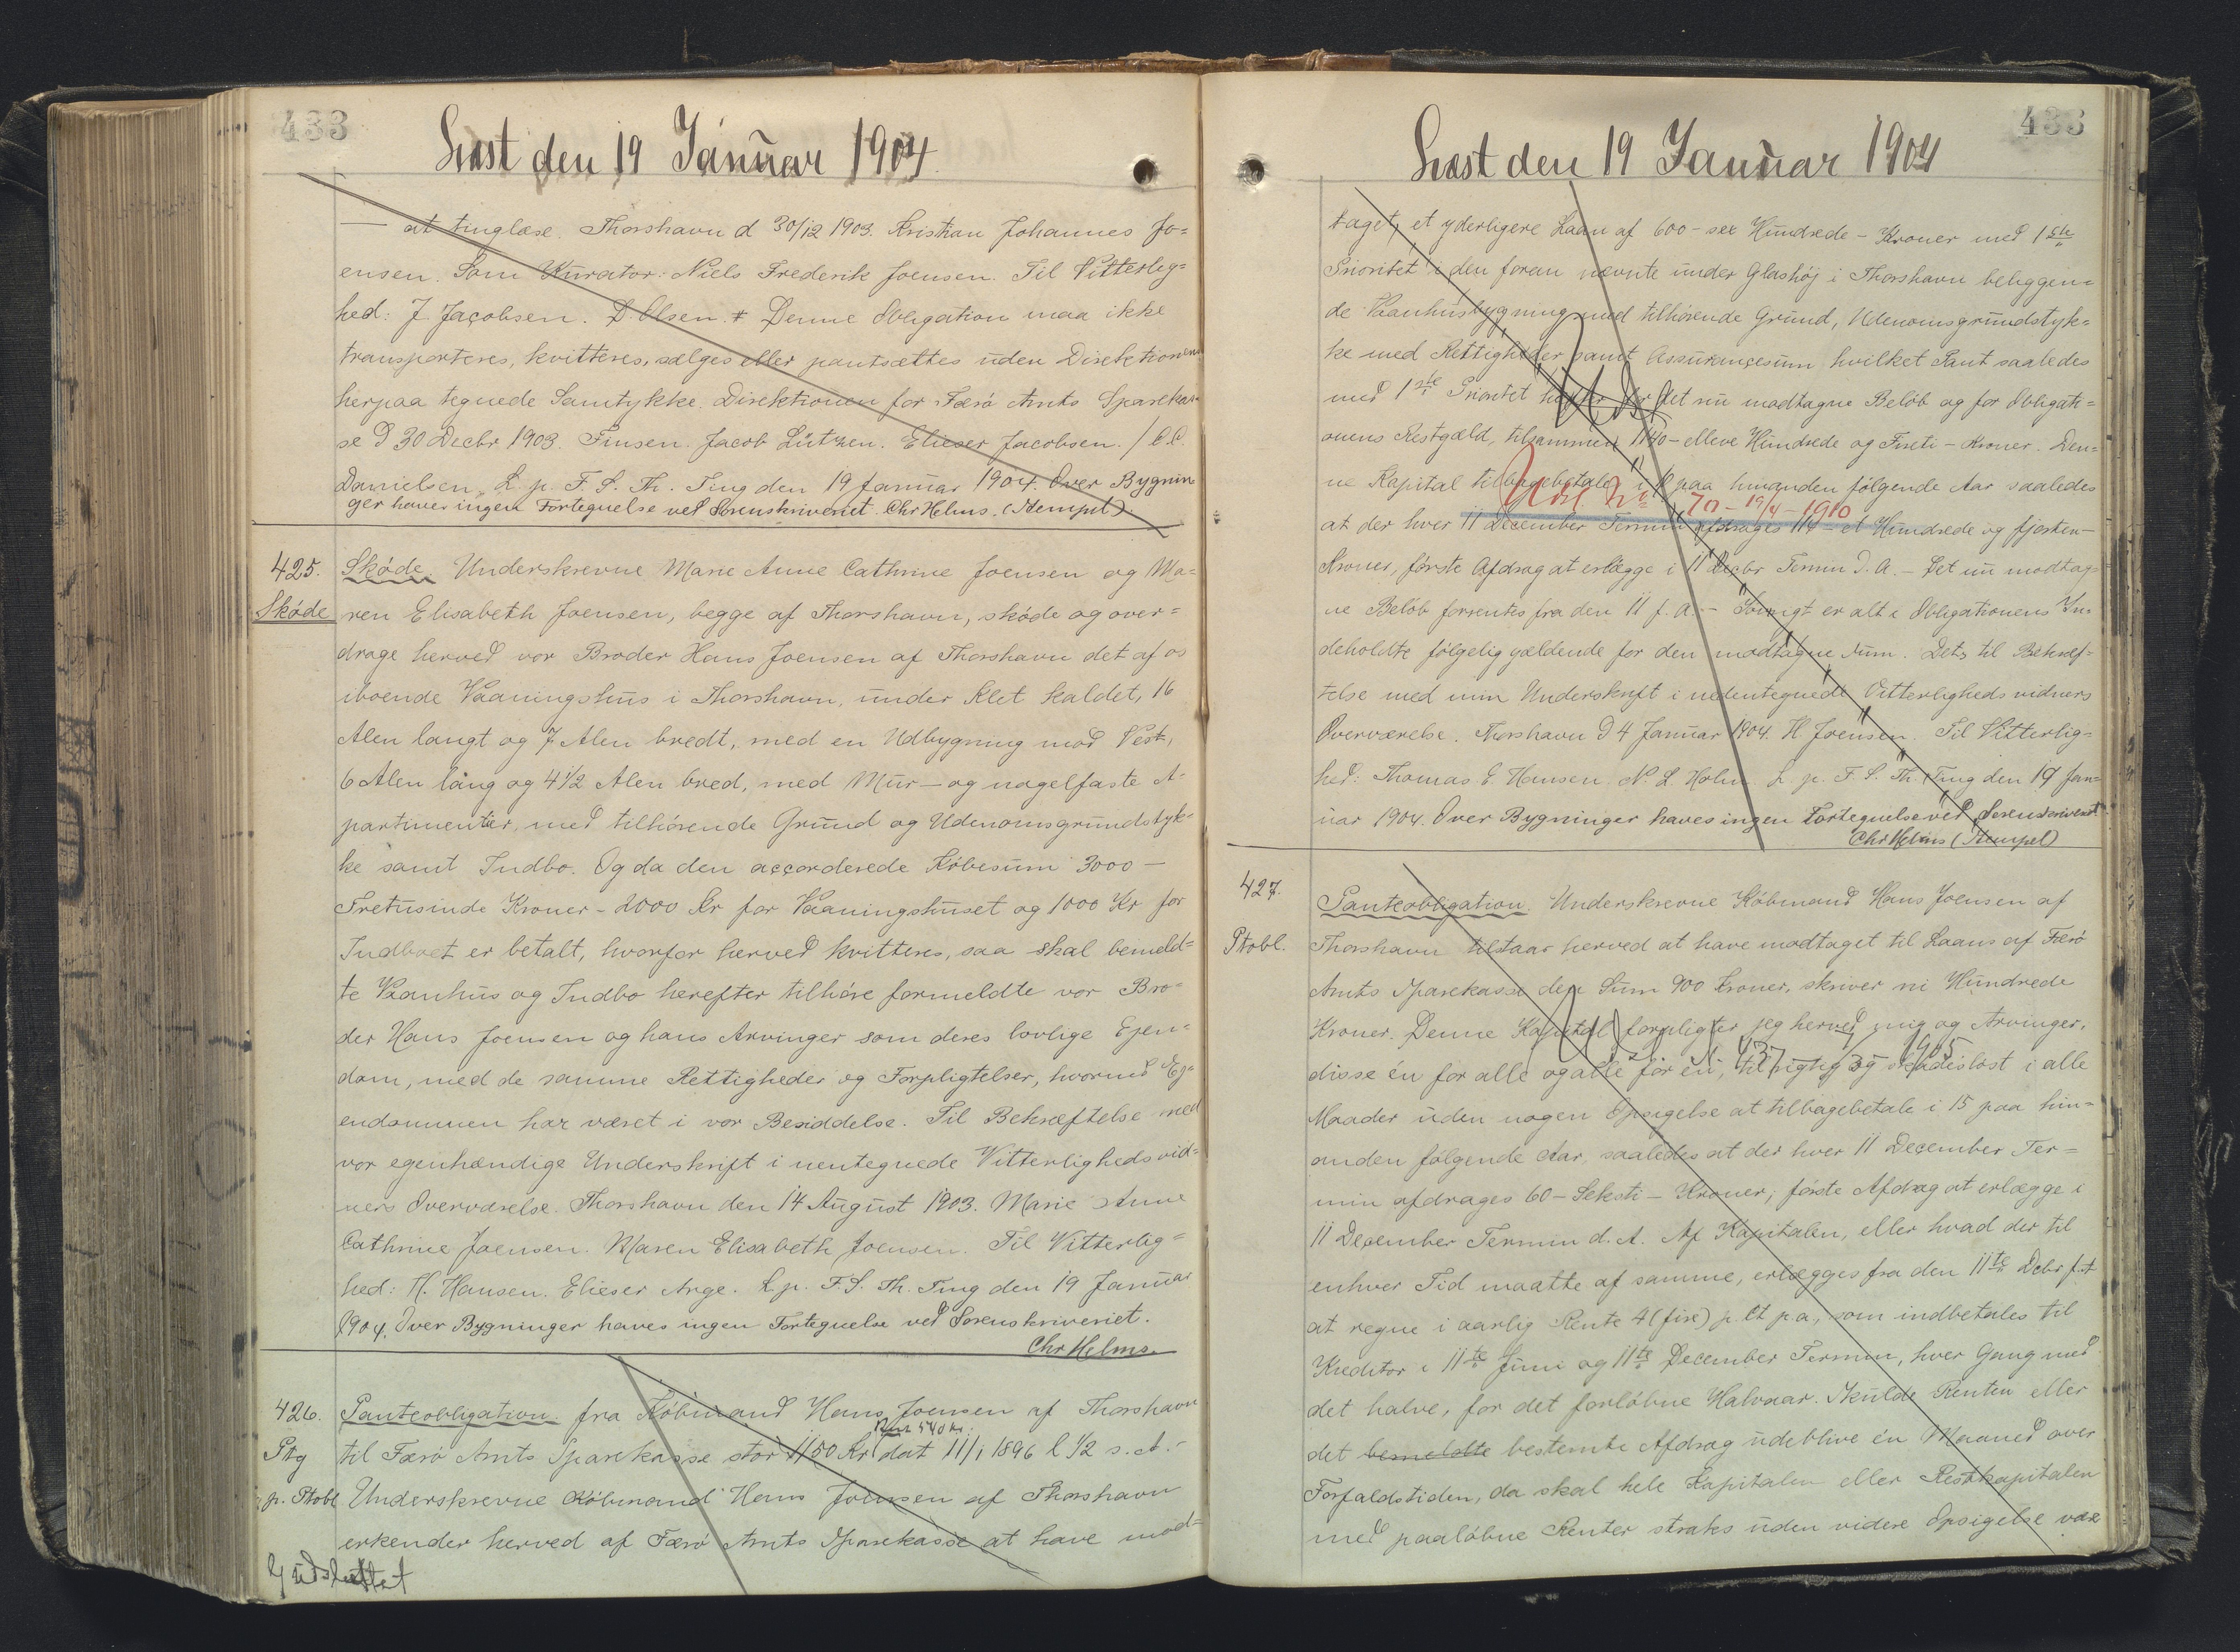 433
Læst den 19 Januar 1904.
— at tinglæse. Thorshavn d 30/12 1903. Kristian Johannes Jo=
ensen. Som Kurator: Niels Frederik Joensen. Til Vitterlig=
hed: J. Jacobsen. D. Olsen. # Denne Obligation maa ikke
transporteres, kvitteres, sælges eller pantsættes uden Direktionens
herpaa tegnede Samtykke. Direktionen for Færø Amts Sparekas=
se d 30 Decbr. 1903. Finsen. Jacob Lützen. Elieser Jacobsen. / C.C.
Danielsen. L. p. F. S. Th. Ting den 19 Januar 1904. Over Bygnin
ger haves ingen Fortegnelse ved Sorenskriveriet. Chr Helms. (Stempel)
425. Skøde. Underskrevne Marie Anne Cathrine Joensen og Ma=
Skøde ren Elisabeth Joensen, begge af Thorshavn, skøde og over=
drage herved vor Broder Hans Joensen af Thorshavn det af os
iboende Vaaningshus i Thorshavn, under Klet kaldet, 16
Alen langt og 7 Alen bredt, med en Udbygning mod Vest,
6 Alen lang og 4 1/2 Alen bred, med Mur- og nagelfaste A=
partimenter, med tilhørende Grund og Udenomsgrundstyk=
ke samt Indbo. Og da den accorderede Købesum 3000 —
Tretusinde Kroner - 2000 Kr for Vaaningshuset og 1000 Kr for
Indboet er betalt, hvorfor herved kvitteres, saa skal bemeld=
te Vaanhus og Indbo herefter tilhøre formeldte vor Bro=
der Hans Joensen og hans Arvinger som deres lovlige Ejen=
dom, med de samme Rettigheder og Forpligtelser, hvormed Ej=
endommen har været i vor Besiddelse. Til Bekræftelse med
vor egenhændige Underskrift i nentegnede Vitterligheds vid=
ners Overværelse. Thorshavn den 14 August 1903. Marie Anne
Cathrine Joensen. Maren Elisabeth Joensen. Til Vitterlig=
hed: H. Hansen. Elieser Arge. L. p. F. S. Th. Ting den 19 Januar
1904. Over Bygninger haves ingen Fortegnelse ved Sorenskriveriet.
Chr Helms.
426. Panteobligation fra Købmand Hans Joensen af Thorshavn
Rest 540 Kr.
Ptg til Færø Amts Sparekasse stor 1150 Kr dat 11/1 1896 l 1/2 s. A. -
p. Ptobl Underskrevne Købmand Hans Joensen af Thorshavn
erkender herved af Færø Amts Sparekasse at have mod=
udslettet
433
Læst den 19 Januar 1904
taget et yderligere Laan af 600 - sex Hundrede - Kroner med 1ste
Prioritet i den foran nævnte under Glashøj i Thorshavn beliggen=
de Vaanhusbygning med tilhørende Grund, Udenomsgrundstyk=
ke med Rettigheder samt Assurancesum hvilket Pant saaledes
med 1ste Prioritet hæfter for det nu modtagne Beløb og for Obligati=
onens Restgæld, tilsammen 1140 - elleve Hundrede og Firti - Kroner. Den=
ne Kapital tilbagebetales i 10 paa hinanden følgende Aar saaledes
Udsl No 70 - 19/4 - 1910
at der hver 11 December Termin afdrages 114 - et Hundrede og fjorten -
Kroner, første Afdrag at erlægge i 11 Decbr Termin d. A. - Det nu modtag=
ne Beløb forrentes fra den 11 f. A. - Iøvrigt er alt i Obligationens In=
deholdte følgelig gældende for den modtagne Sum. Dets til Bekræf=
telse med min Underskrift i nedentegnede Vitterligheds vidners
Overværelse. Thorshavn d 4 Januar 1904. H. Joensen. Til Vitterlig=
hed: Thomas E. Hansen. N. L. Holm. L. p. F. S. Th. Ting den 19 Jan=
uar 1904. Over Bygninger haves ingen Fortegnelse ved Sorenskriveriet.
Chr Helms (Stempel)
427. Panteobligation. Underskrevne Købmand Hans Joensen af
Ptobl. Thorshavn tilstaar herved at have modtaget til Laans af Færø
Amts Sparekasse den Sum 900 Kroner, skriver ni Hundrede
Kroner. Denne Kapital forpligter jeg herved mig og Arvinger,
disse én for alle og alle for én, til rigtig og skadesløst i alle
Maader uden nogen Opsigelse at tilbagebetale i 15 paa hin=
anden følgende Aar, saaledes at der hver 11 December Ter=
min afdrages 60 - Seksti - Kroner, første Afdrag at erlægge i
11 December Termin d. A. Af Kapitalen, eller hvad der til
enhver Tid maatte af samme, erlægges fra den 11te Dcbr f. A
at regne i aarlig Rente 4 (fire) p. Ct p a, som indbetales til
Kreditor i 11te Juni og 11te December Termin, hver Gang med
det halve, for det forløbne Halvaar. Skulde Renten eller
det bemeldte bestemte Afdrag udeblive én Maaned over
Forfaldstiden, da skal hele Kapitalen eller Restkapitalen
med paaløbne Renter straks uden videre Opsigelse være